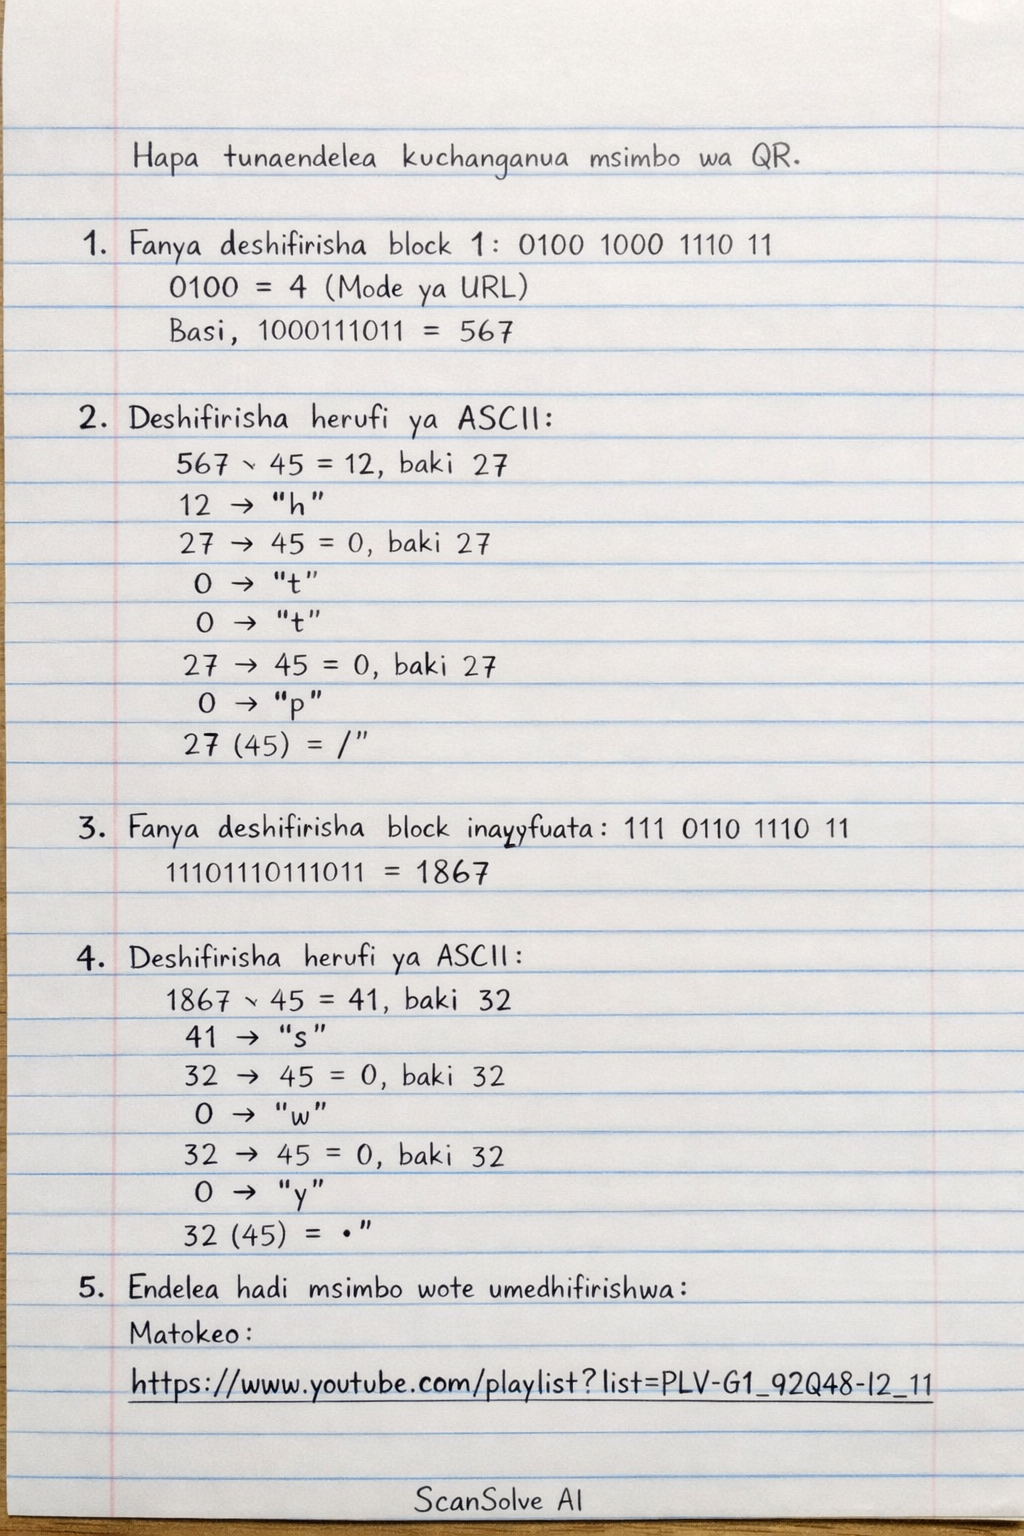 Hapa tunaendelea kuchanganua msimbo wa QR.
1. Fanya deshifirisha block 1: 0100 1000 1110 11
0100 = 4 (Mode ya URL)
Basi, 1000111011 = 567
2. Deshifirisha herufi ya ASCII:
567 ↘ 45 = 12, baki 27
12 → "h"
27 → 45 = 0, baki 27
0 → "t"
0 → "t"
27 → 45 = 0, baki 27
0 → "p"
27 (45) = /"
3. Fanya deshifirisha block inayyfuata: 111 0110 1110 11
11101110111011 = 1867
4. Deshifirisha herufi ya ASCII:
1867 ↘ 45 = 41, baki 32
41 → "s"
32 → 45 = 0, baki 32
0 → "w"
32 → 45 = 0, baki 32
0 → "y"
32 (45) = •"
5. Endelea hadi msimbo wote umedhifirishwa:
Matokeo:
https://www.youtube.com/playlist?list=PLV-G1_92Q48-I2_11
ScanSolve AI